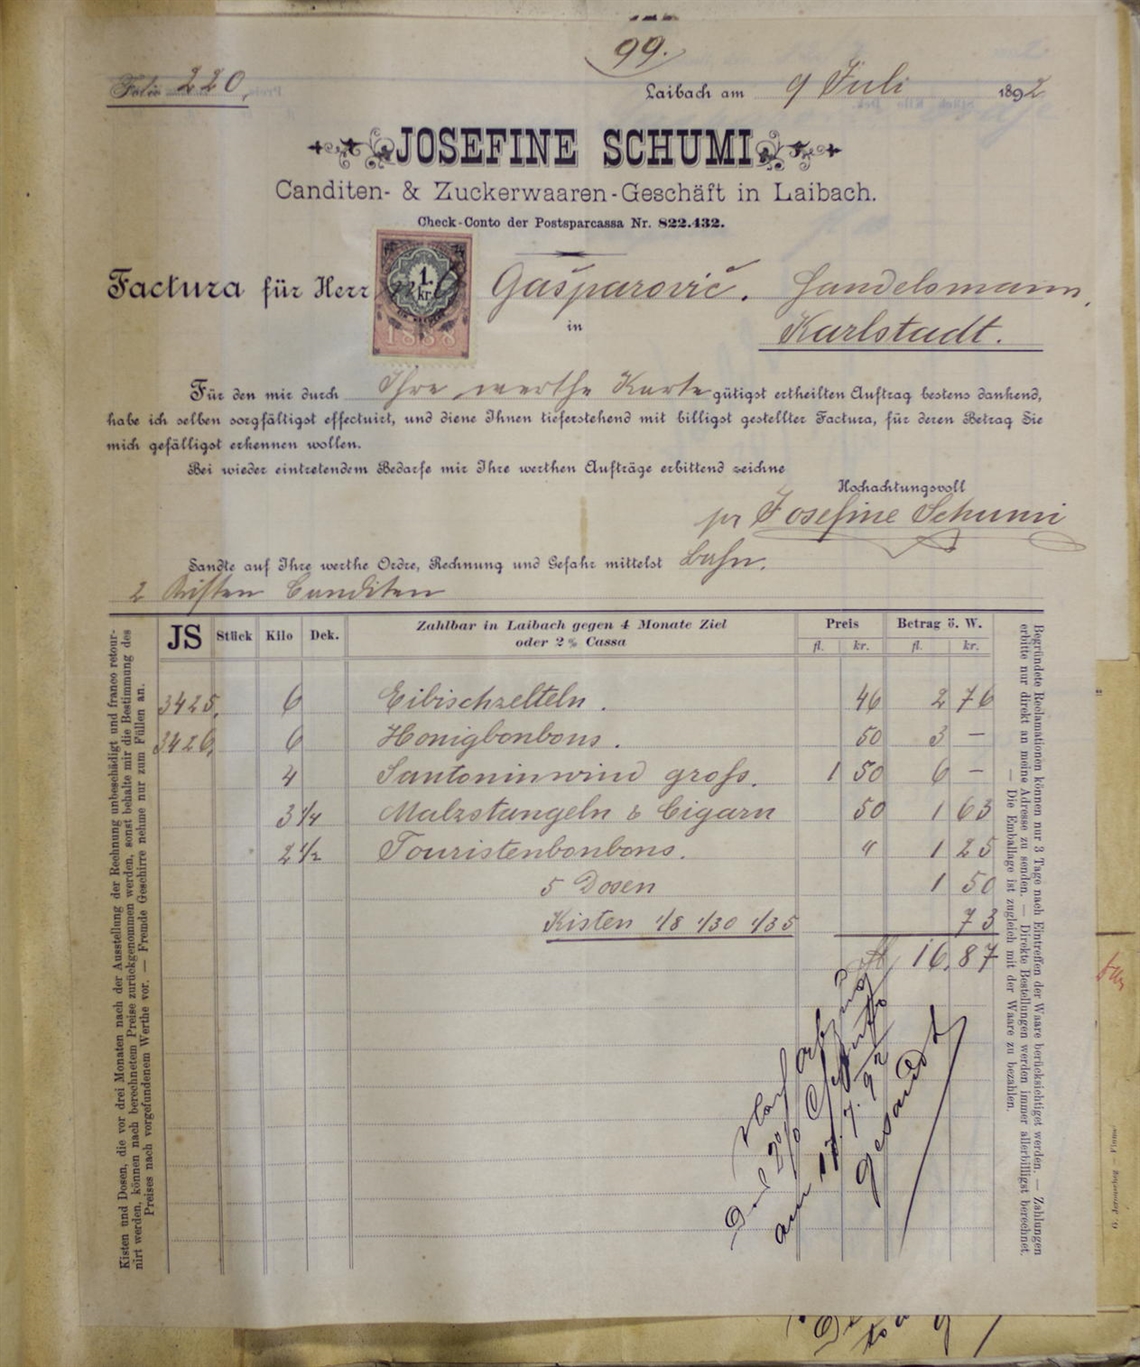 99.
Folio 220.
Laibach am 9 Juli 1892
JOSEFINE SCHUMI
Canditen- & Zuckerwaaren-Geschäft in Laibach.
Check-Conto der Postsparcassa Nr. 822.432.
Factura für Herr Gašparovič. Handelsmann,
1 kr.
1888
in Karlstadt.
Für den mir durch Ihre werthe Karte gütigst ertheilten Auftrag bestens dankend,
habe ich selben sorgfältigst effectuirt, und diene Ihnen tieferstehend mit billigst gestellter Factura, für deren Betrag Sie
mich gefälligst erkennen wollen.
Bei wieder eintretendem Bedarfe mir Ihre werthen Aufträge erbittend zeichne
Hochachtungsvoll
pr Josefine Schumi
Sandte auf Ihre werthe Ordre, Rechnung und Gefahr mittelst Bahn.
2 Kisten Canditen
JS Stück Kilo Dek. Zahlbar in Laibach gegen 4 Monate Ziel Preis Betrag ö. W.
oder 2% Cassa fl. kr. fl. kr.
3425. 6 Eibischzelteln. 46 2 76
3426. 6 Honigbonbons. 50 3 —
4 Santoninwind gross. 1 50 6 —
3 1/4 Malzstangeln & Cigarn 50 1 63
2 1/2 Touristenbonbons. " 1 25
5 Dosen 1 50
Kisten 1/8 1/30 1/35 73
fl 16.87
Nach Abzug
am 13. 7. 92
gesandt
Kisten und Dosen, die vor drei Monaten nach der Ausstellung der Rechnung unbeschädigt und franco retour-
nirt werden, können nach berechnetem Preise zurückgenommen werden, sonst behalte mir die Bestimmung des
Preises nach vorgefundenem Werthe vor. — Fremde Geschirre nehme nur zum Füllen an.
Begründete Reclamationen können nur 3 Tage nach Eintreffen der Waare berücksichtiget werden. — Zahlungen
erbitte nur direkt an meine Adresse zu senden. — Direkte Bestellungen werden immer allerbilligst berechnet.
— Die Emballage ist zugleich mit der Waare zu bezahlen.